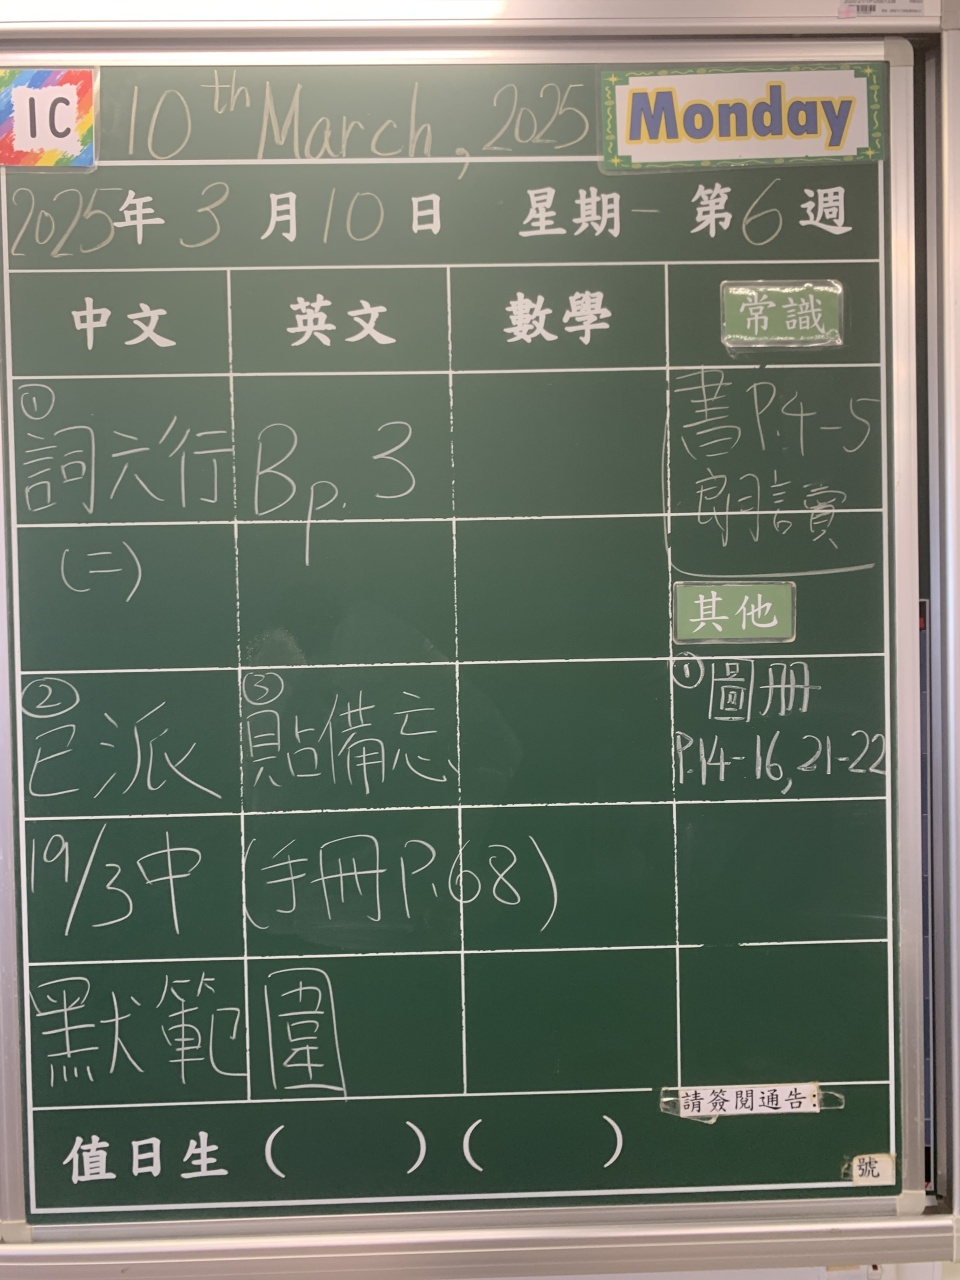 1C 10th March, 2025 Monday
2025年3月10日 星期一 第6週
中文 英文 數學 常識
①
詞六行 Bp.3 書P.4-5
朗讀
(二)
其他
② ③ ①圖册
已派 貼備忘 P.14-16, 21-22
19/3中 (手冊P.68)
默範圍
請簽閱通告:
值日生 ( ) ( )
號